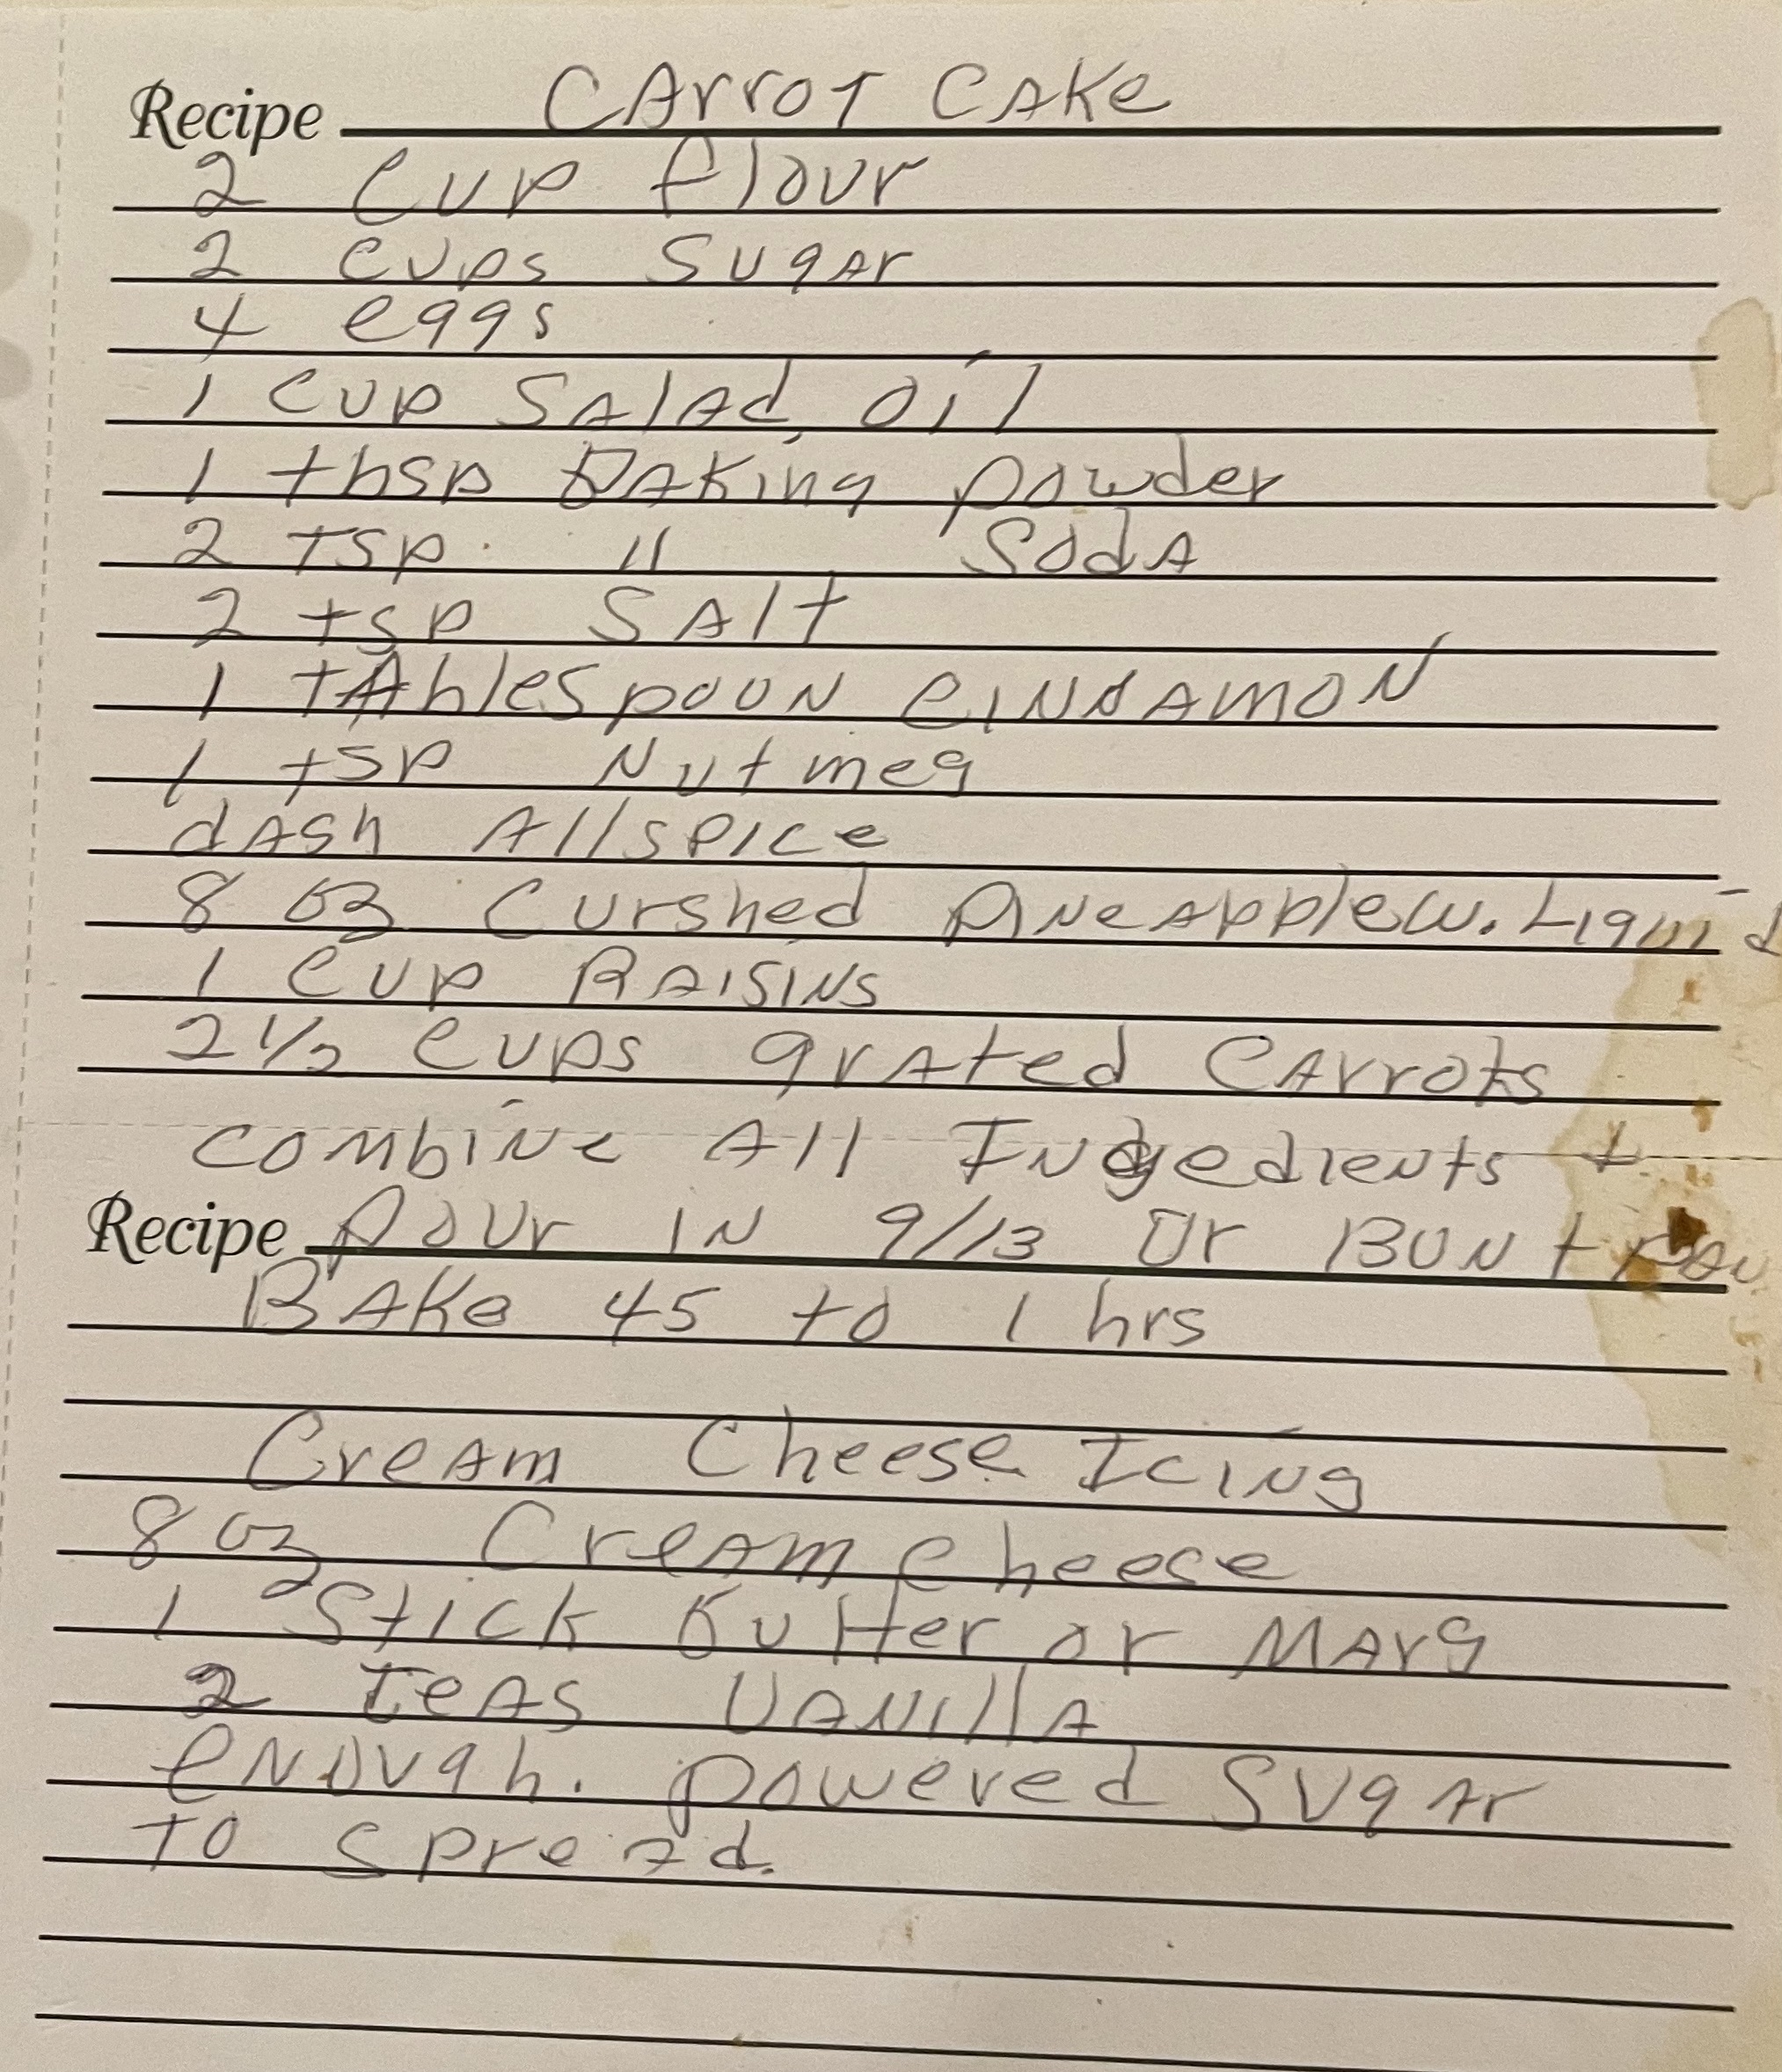 Recipe Carrot Cake
2 Cup flour
2 Cups Sugar
4 eggs
1 Cup Salad oil
1 tbsp Baking powder
2 tsp " Soda
2 tsp Salt
1 tablespoon Cinnamon
1 tsp Nutmeg
dash Allspice
8 oz Curshed Pineapple w. Liquid
1 Cup Raisins
2 1/2 Cups grated Carrots
Combine All Ingredients +
Recipe Pour in 9/13 or Bunt pan
Bake 45 to 1 hrs
Cream Cheese Icing
8 oz Cream Cheese
1 Stick Butter or Marg
2 Teas Vanilla
enough. powered Sugar
To Spread.